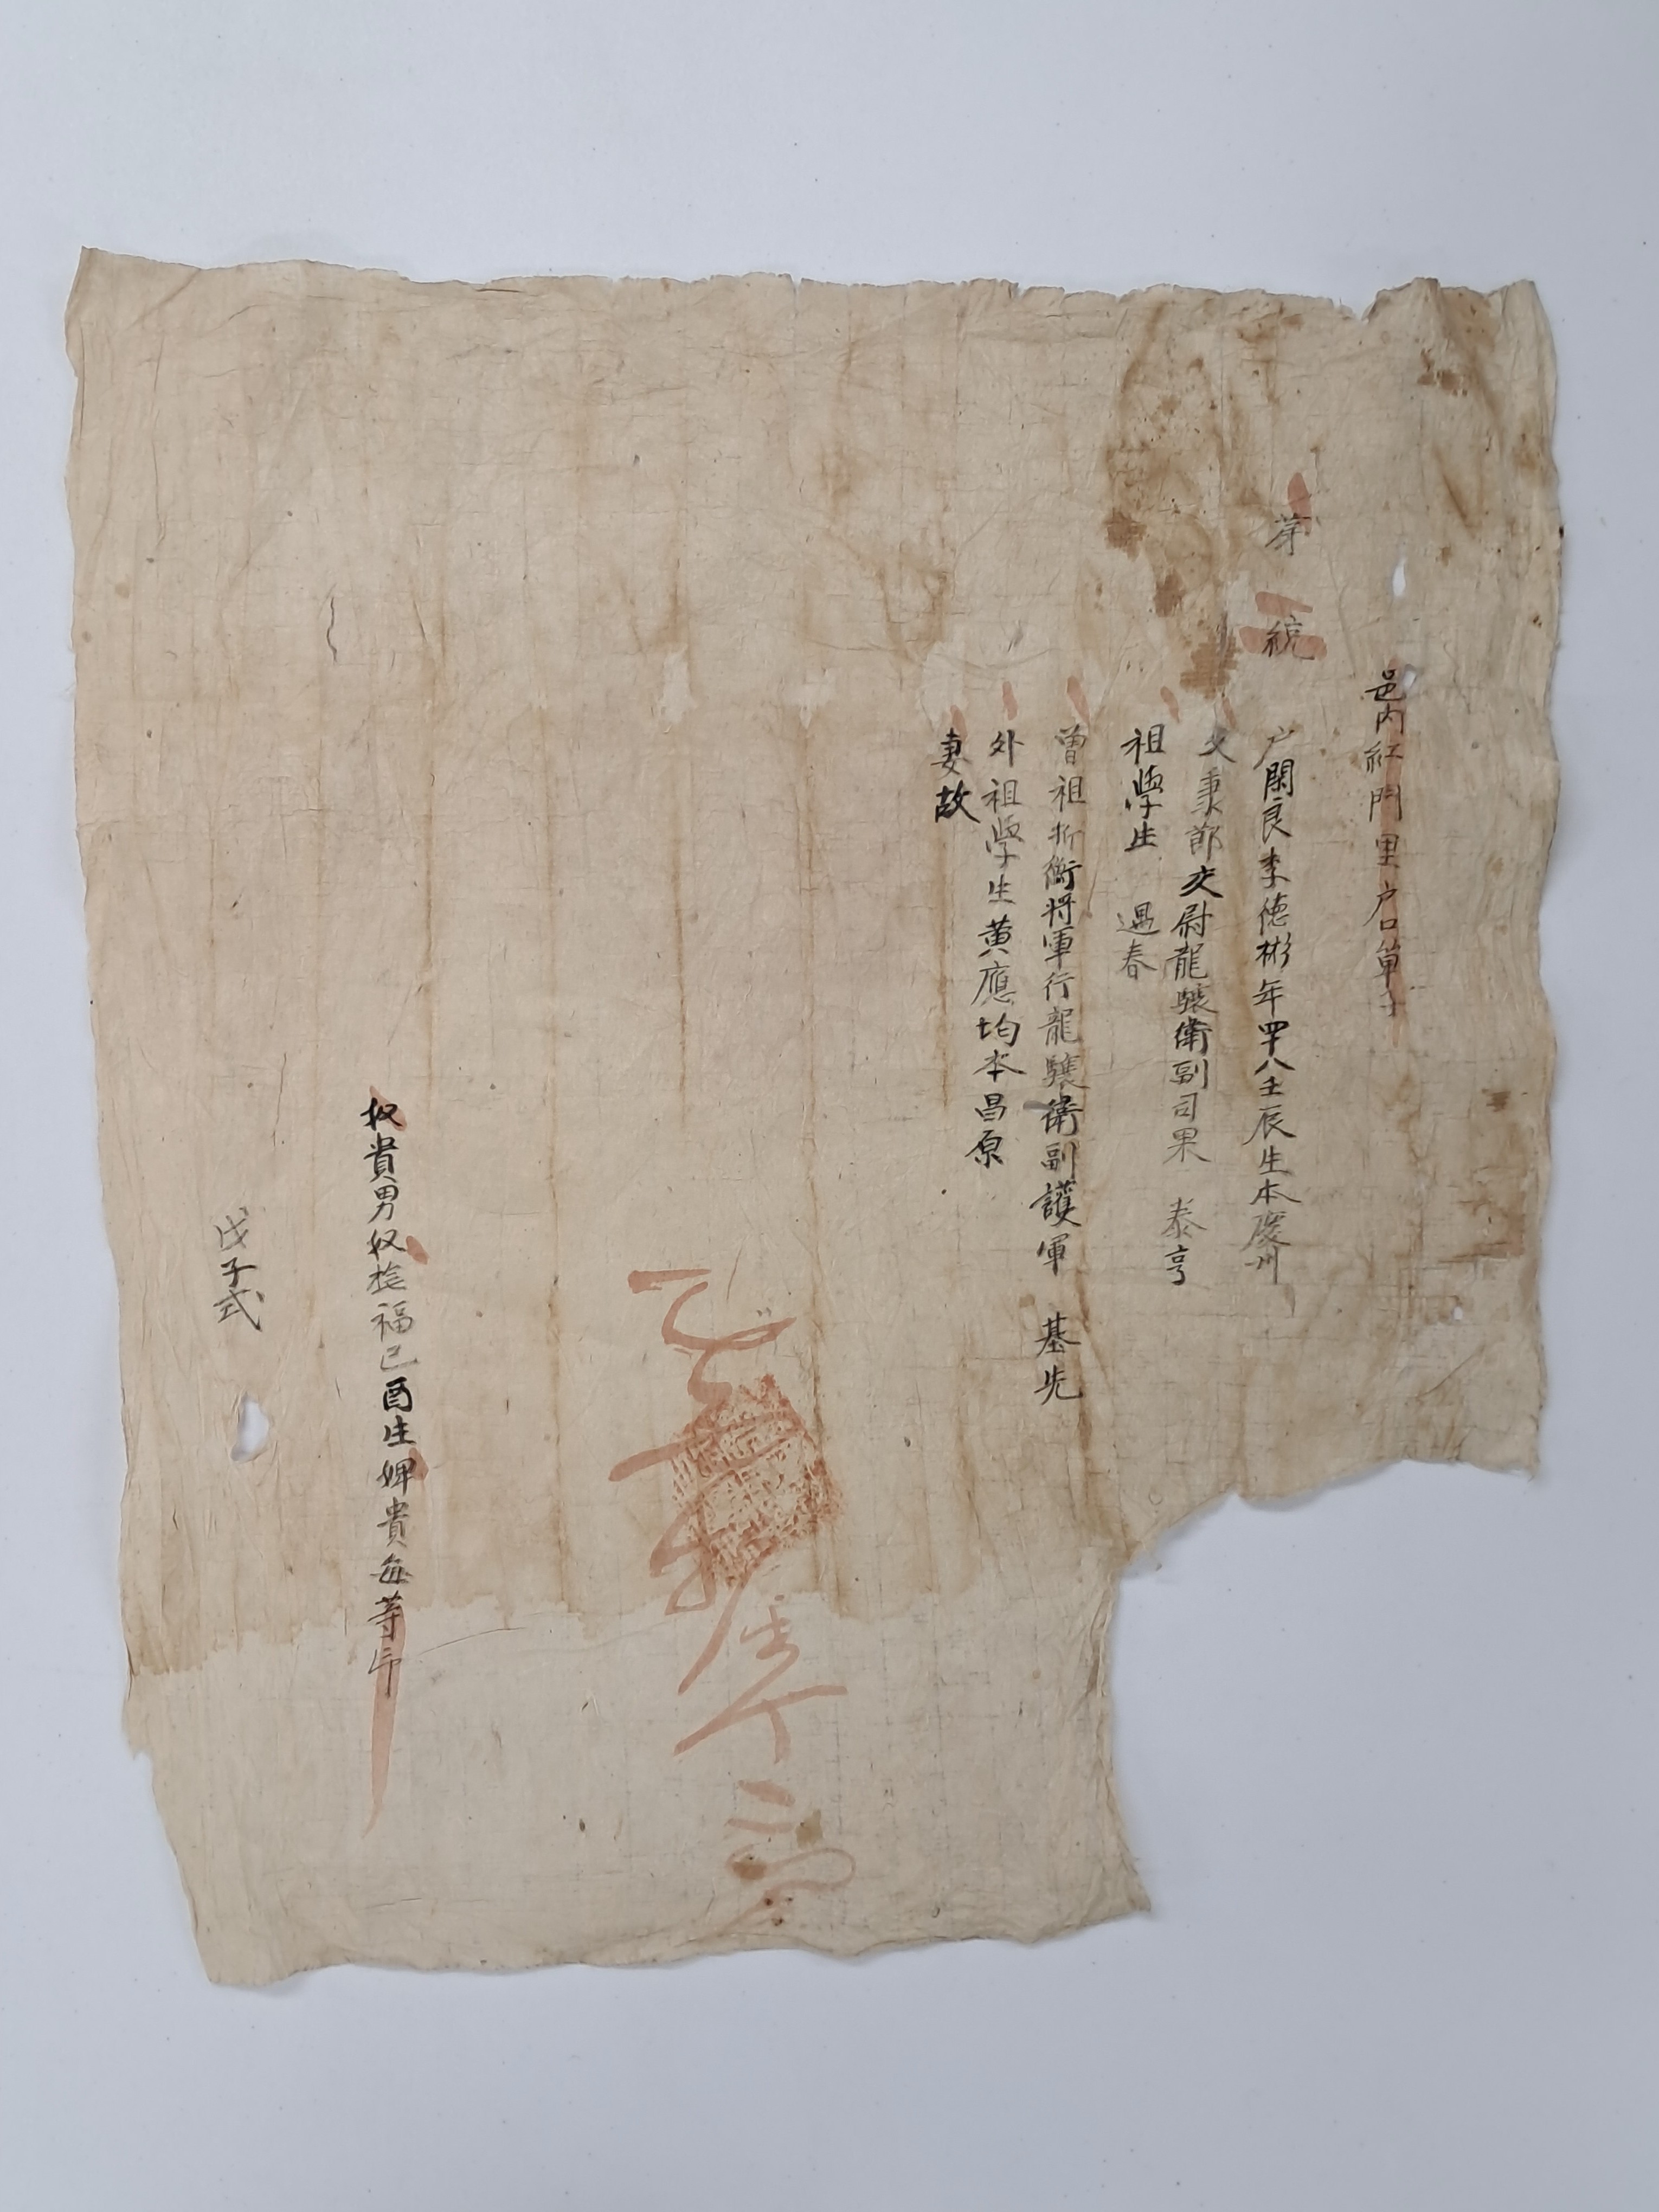 邑內紅門里戶口單子
第 統
戶閑良李德彬年四十八壬辰生本慶州
父秉節校尉龍驤衛副司果 泰亨
祖學生 遇春
曾祖折衝將軍行龍驤衛副護軍 基先
外祖學生黃應均本昌原
妻故
奴貴男奴 福己酉生婢貴每等印
戊子式